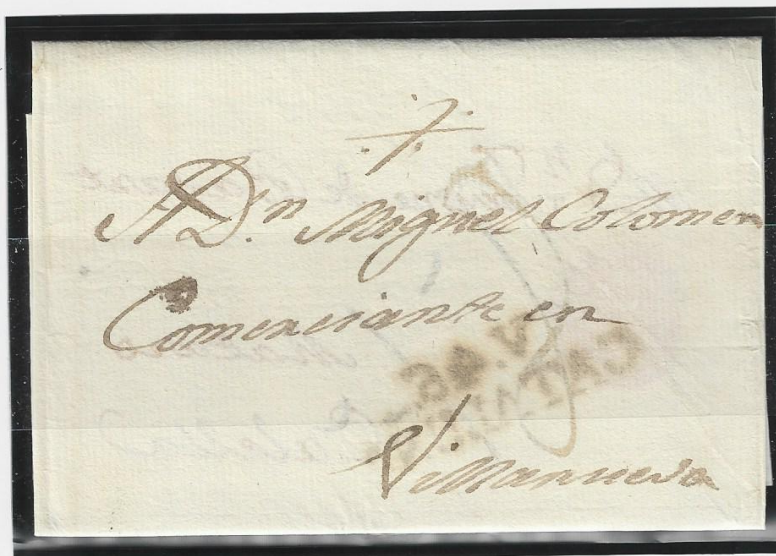 A D.n Miguel Colomer
Comerciante en
Villanueva